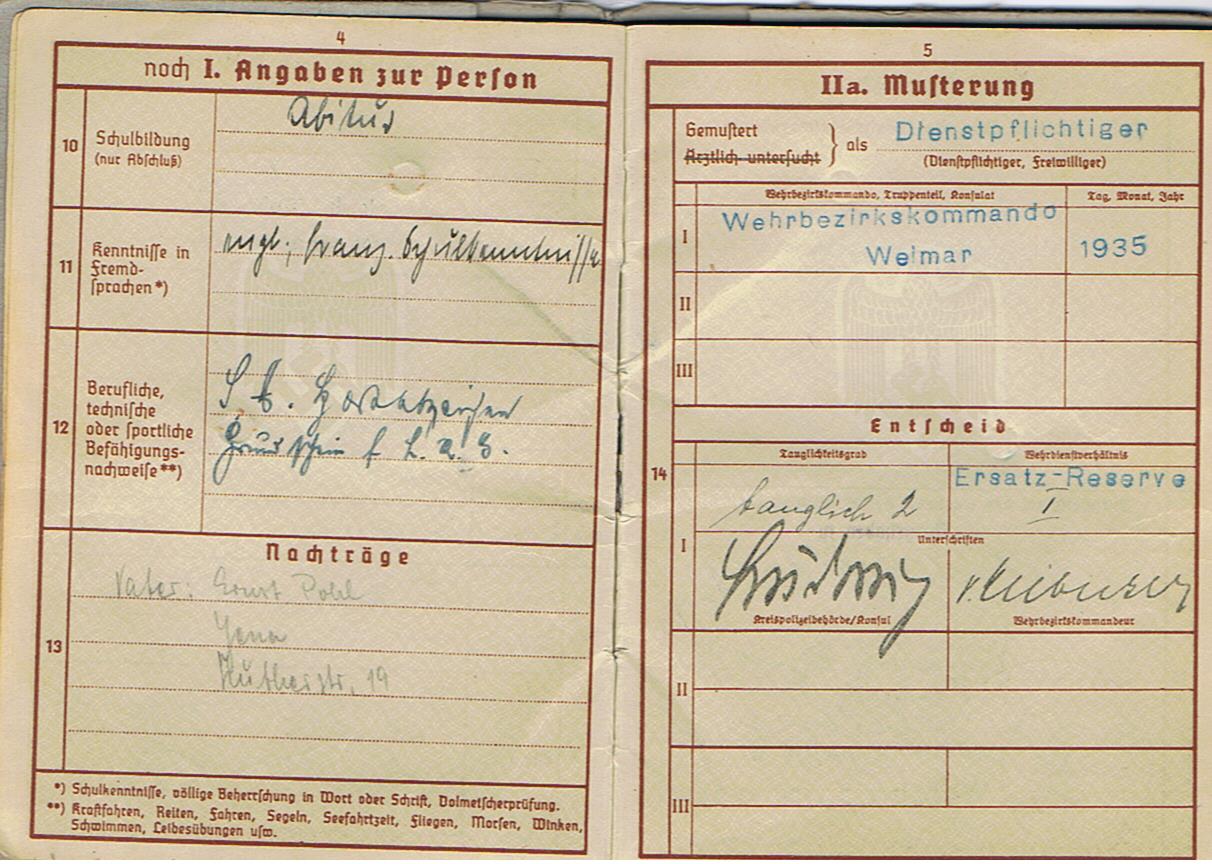 4
noch I. Angaben zur Person
10
Schulbildung
(nur Abschluß)
Abitur
11
Kenntnisse in
Fremd-
sprachen *)
engl., franz. Schulkenntnisse
12
Berufliche,
technische
oder sportliche
Befähigungs-
nachweise **)
Grundschein f
Nachträge
13
Vater: Ernst Pohl
Jena
19
*) Schulkenntnisse, völlige Beherrschung in Wort oder Schrift, Dolmetscherprüfung.
**) Kraftfahren, Reiten, Fahren, Segeln, Seefahrtzeit, Fliegen, Morsen, Winken,
Schwimmen, Leibesübungen usw.
5
IIa. Musterung
Gemustert
Ärztlich untersucht
als
Dienstpflichtiger
(Dienstpflichtiger, Freiwilliger)
Wehrbezirkskommando, Truppenteil, Konsulat
Tag, Monat, Jahr
I
Wehrbezirkskommando
Weimar
1935
II
III
Entscheid
14
Tauglichkeitsgrad
Wehrdienstverhältnis
I
tauglich 2
Ersatz-Reserve
I
Unterschriften
Kreispolizeibehörde/Konsul
Wehrbezirkskommandeur
II
III